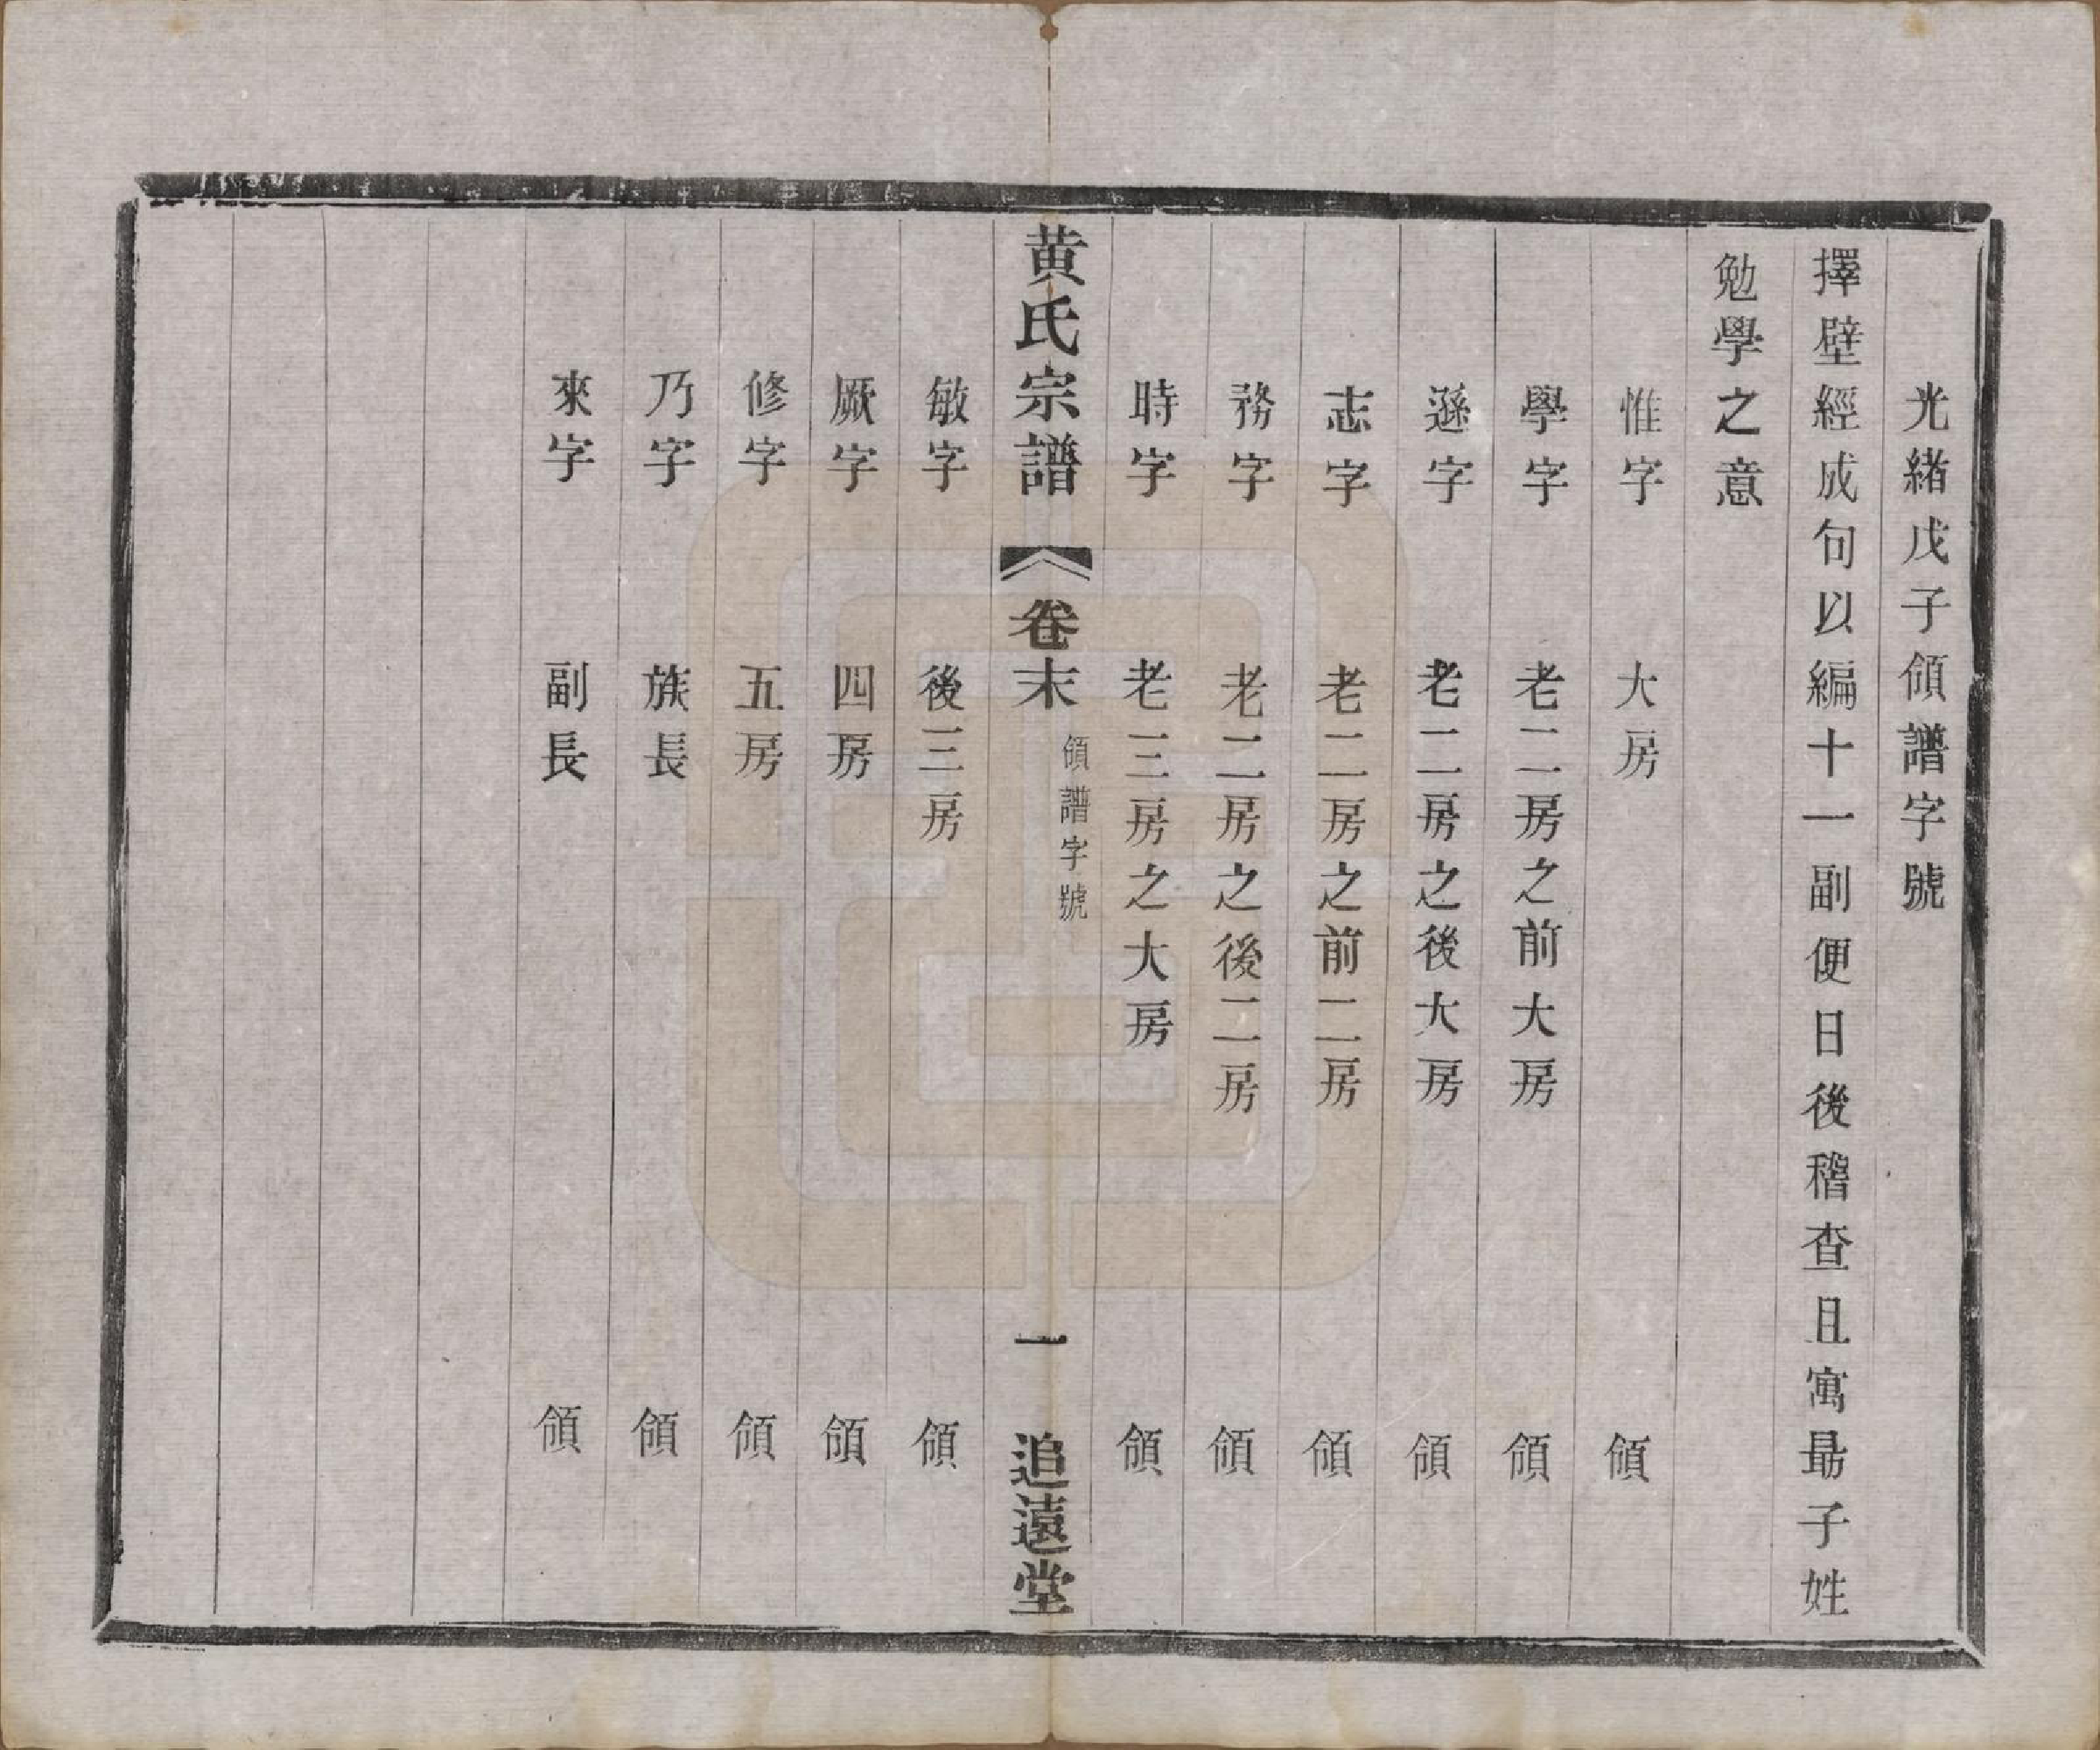 光緒戊子領譜字號
擇壁經成句以編十一副便日後稽查且寓勗子姓
勉學之意
惟字 大房 領
學字 老二房之前大房 領
遜字 老二房之後大房 領
志字 老二房之前二房 領
務字 老二房之後二房 領
時字 老三房之大房 領
黄氏宗譜 卷末 領譜字號 一 追遠堂
敏字 後三房 領
厥字 四房 領
修字 五房 領
乃字 族長 領
來字 副長 領